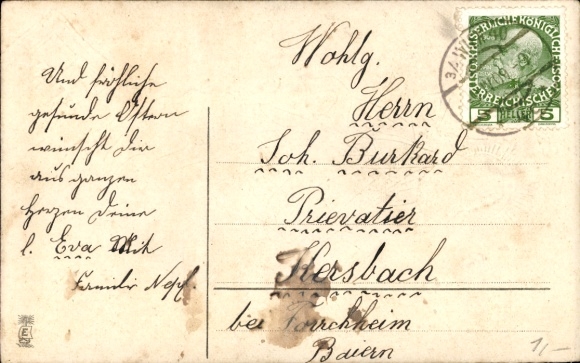 Und fröhliche
gesunde Ostern
wünscht dir
aus ganzen
Herzen deine
l. Eva Mit
Familie
Wohlg.
Herrn
Joh. Burkard
Prievatier
Kersbach
bei Forchheim
Baiern
KAISERLICHE KÖNIGLICHE
ÖSTERREICHISCHE
5 HELLER 5
1/-